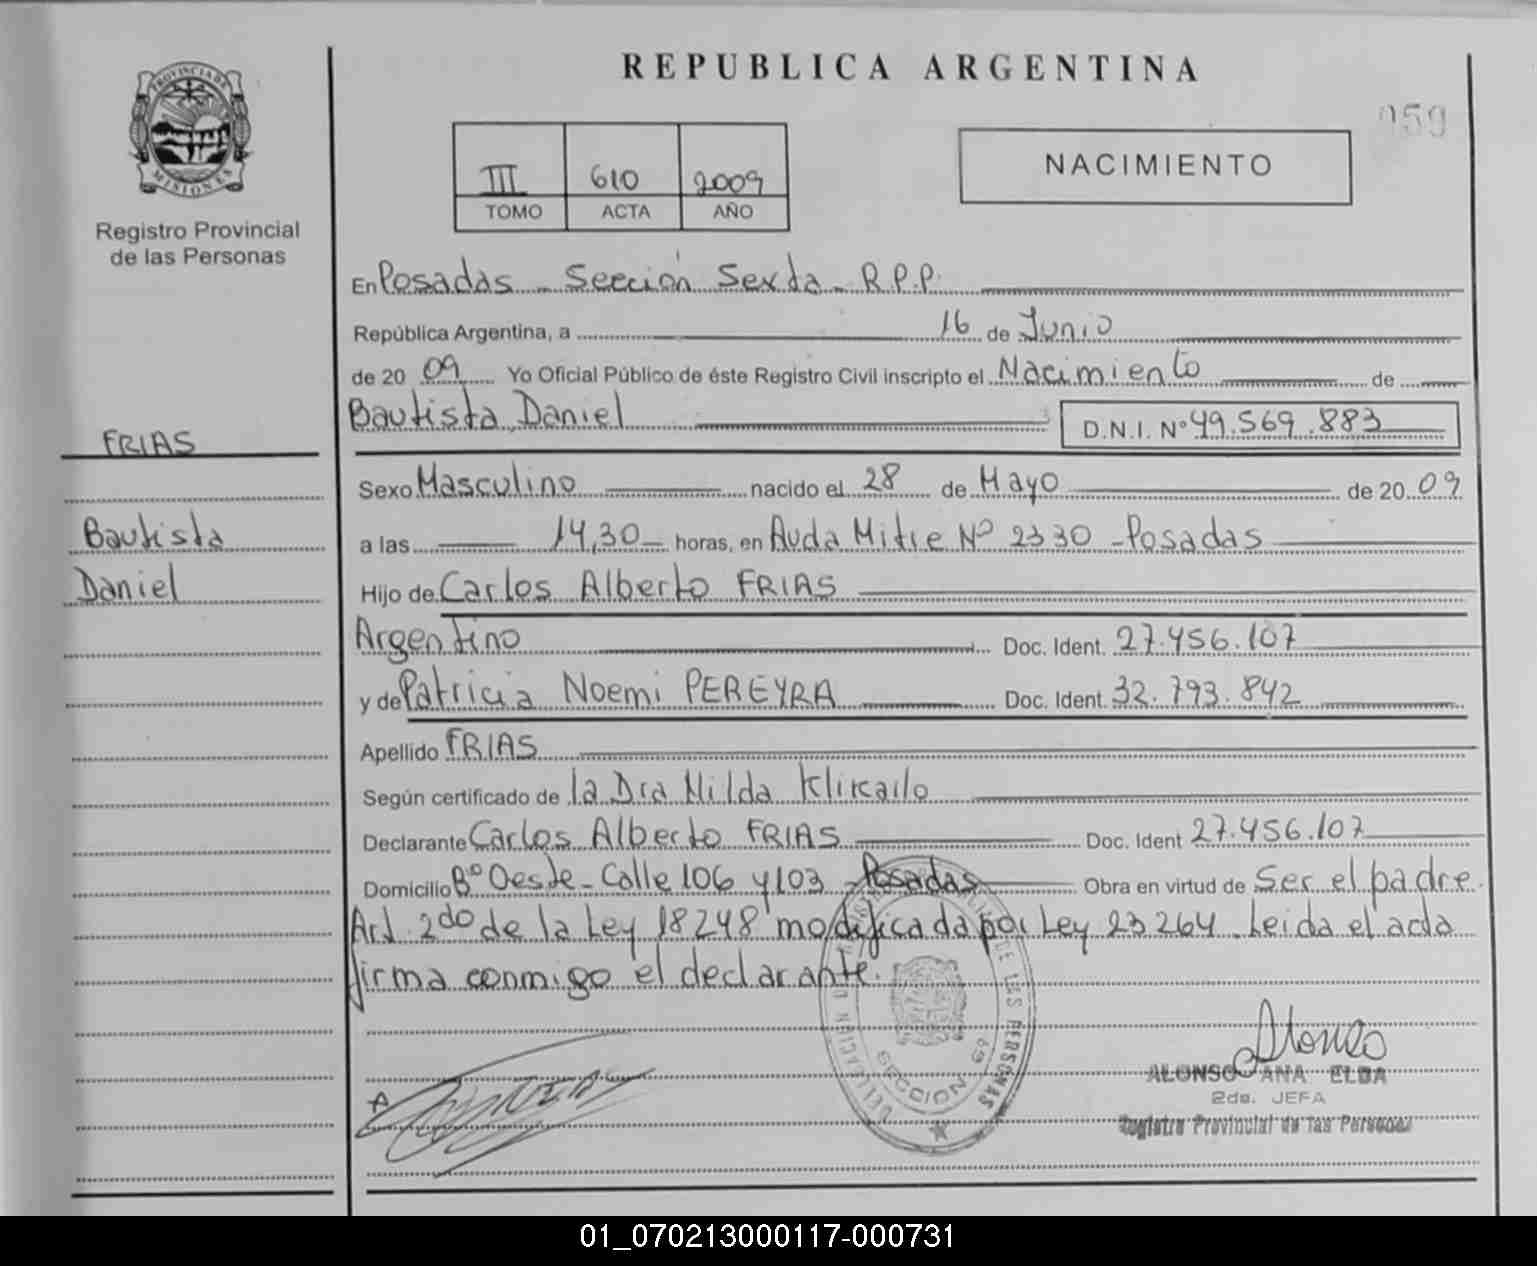 REPUBLICA ARGENTINA
059
PROVINCIA DE MISIONES
Registro Provincial
de las Personas
III 610 2009
TOMO ACTA AÑO
NACIMIENTO
En Posadas - Sección Sexta - R.P.P.
República Argentina, a 16 de Junio
de 20 09 Yo Oficial Público de éste Registro Civil inscripto el Nacimiento de
Bautista Daniel D.N.I. Nº 49.569.883
FRIAS
Sexo Masculino nacido el 28 de Mayo de 20 09
Bautista
a las 14,30 horas, en Avda Mitre Nº 2330 - Posadas
Daniel
Hijo de Carlos Alberto FRIAS
Argentino Doc. Ident. 27.456.107
y de Patricia Noemi PEREYRA Doc. Ident. 32.793.842
Apellido FRIAS
Según certificado de la Dra Milda Klikailo
Declarante Carlos Alberto FRIAS Doc. Ident 27.456.107
Domicilio Bº Oeste - Calle 106 y 103 - Posadas Obra en virtud de Ser el padre
Art. 2do de la Ley 18248 modificada por Ley 23264. Leida el acta
firma conmigo el declarante.
DE LAS PERSONAS
SECCION 6ª
Alonso
ALONSO ANA ELBA
2da. JEFA
Registro Provincial de las Personas
01_070213000117-000731